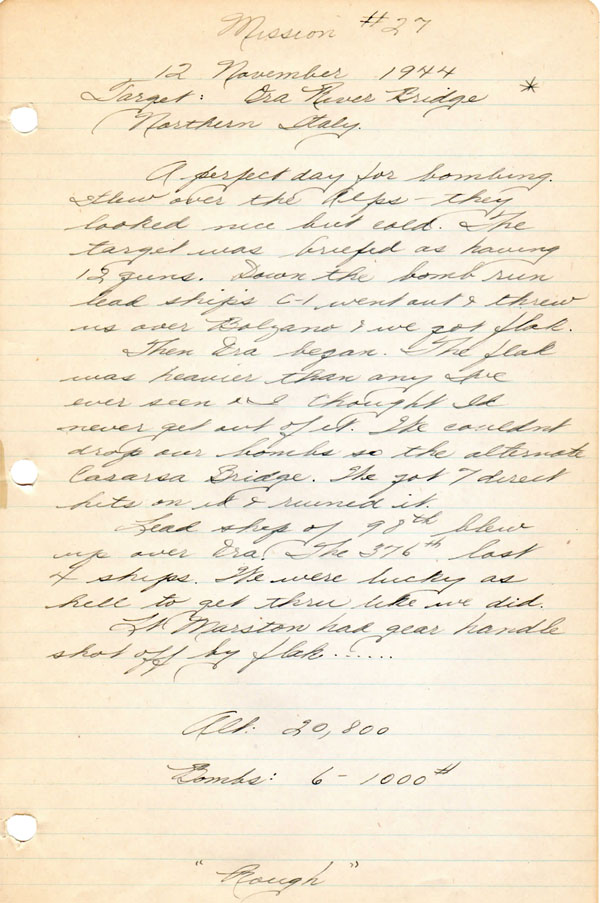 Mission #27
12 November 1944
Target: Ora River Bridge *
Northern Italy.
A perfect day for bombing.
Flew over the Alps - they
looked nice but cold. The
target was briefed as having
12 guns. Down the bomb run
lead ship's C-1 went out & threw
us over Bolzano & we got flak.
Then Ora began. The flak
was heavier than any I've
ever seen & I thought I'd
never get out of it. We couldnt
drop our bombs so the alternate
Casarsa Bridge. We got 7 direct
hits on it & ruined it.
Lead ship of 98th blew
up over Ora. The 376th lost
4 ships. We were lucky as
hell to get thru like we did.
Lt Marston had gear handle
shot off by flak......
Alt: 20,800
Bombs: 6 - 1000#
"Rough"